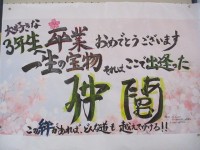 大好きな
3年生、卒業おめでとうございます
一生の宝物それは、ここで出逢った
仲間
この絆があれば、どんな道も越えていける!!